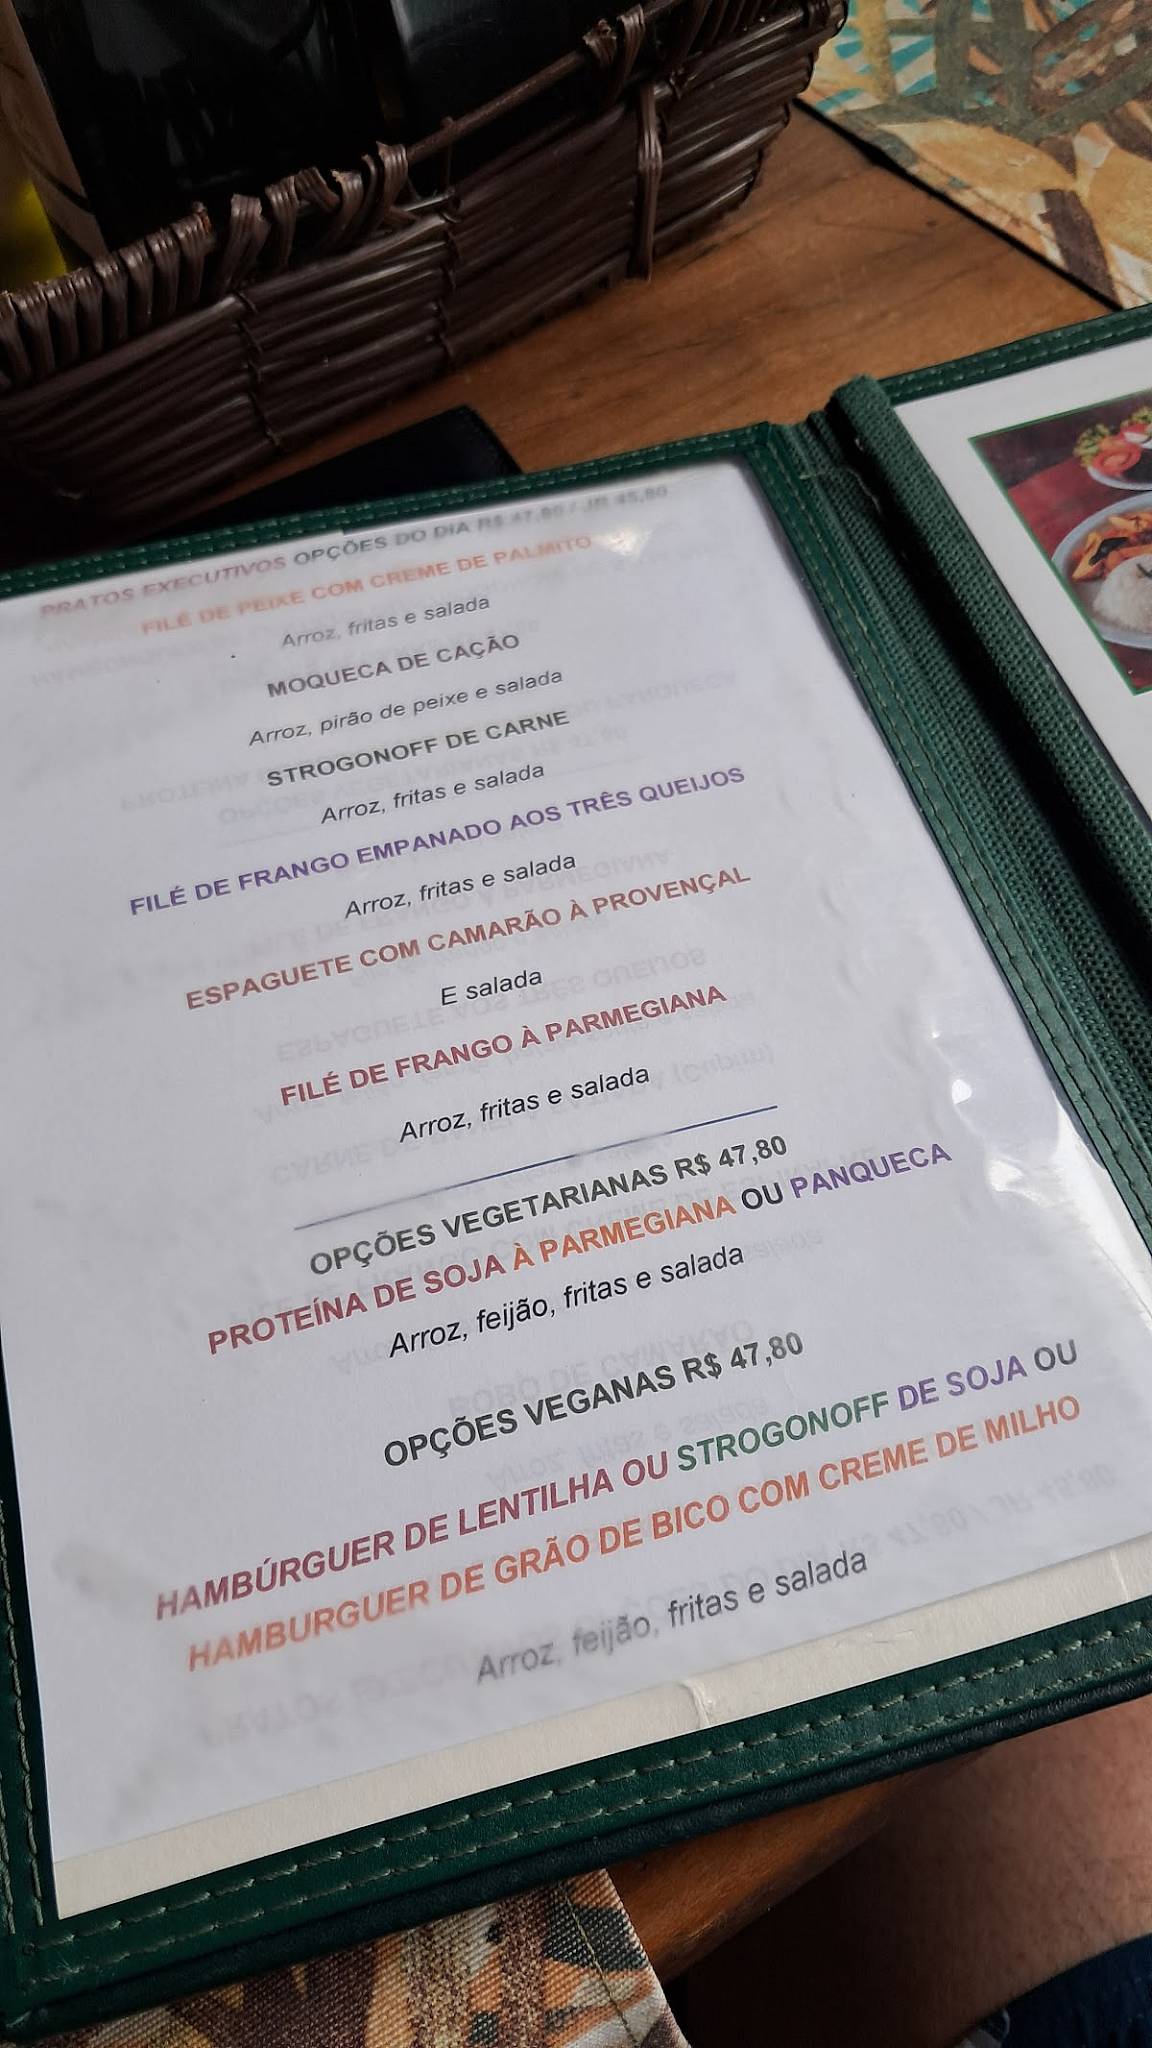 PRATOS EXECUTIVOS OPÇÕES DO DIA R$ 47,80 / JR 45,80
FILÉ DE PEIXE COM CREME DE PALMITO
Arroz, fritas e salada
MOQUECA DE CAÇÃO
Arroz, pirão de peixe e salada
STROGONOFF DE CARNE
Arroz, fritas e salada
FILÉ DE FRANGO EMPANADO AOS TRÊS QUEIJOS
Arroz, fritas e salada
ESPAGUETE COM CAMARÃO À PROVENÇAL
E salada
FILÉ DE FRANGO À PARMEGIANA
Arroz, fritas e salada
OPÇÕES VEGETARIANAS R$ 47,80
PROTEÍNA DE SOJA À PARMEGIANA OU PANQUECA
Arroz, feijão, fritas e salada
OPÇÕES VEGANAS R$ 47,80
HAMBÚRGUER DE LENTILHA OU STROGONOFF DE SOJA OU
HAMBURGUER DE GRÃO DE BICO COM CREME DE MILHO
Arroz, feijão, fritas e salada